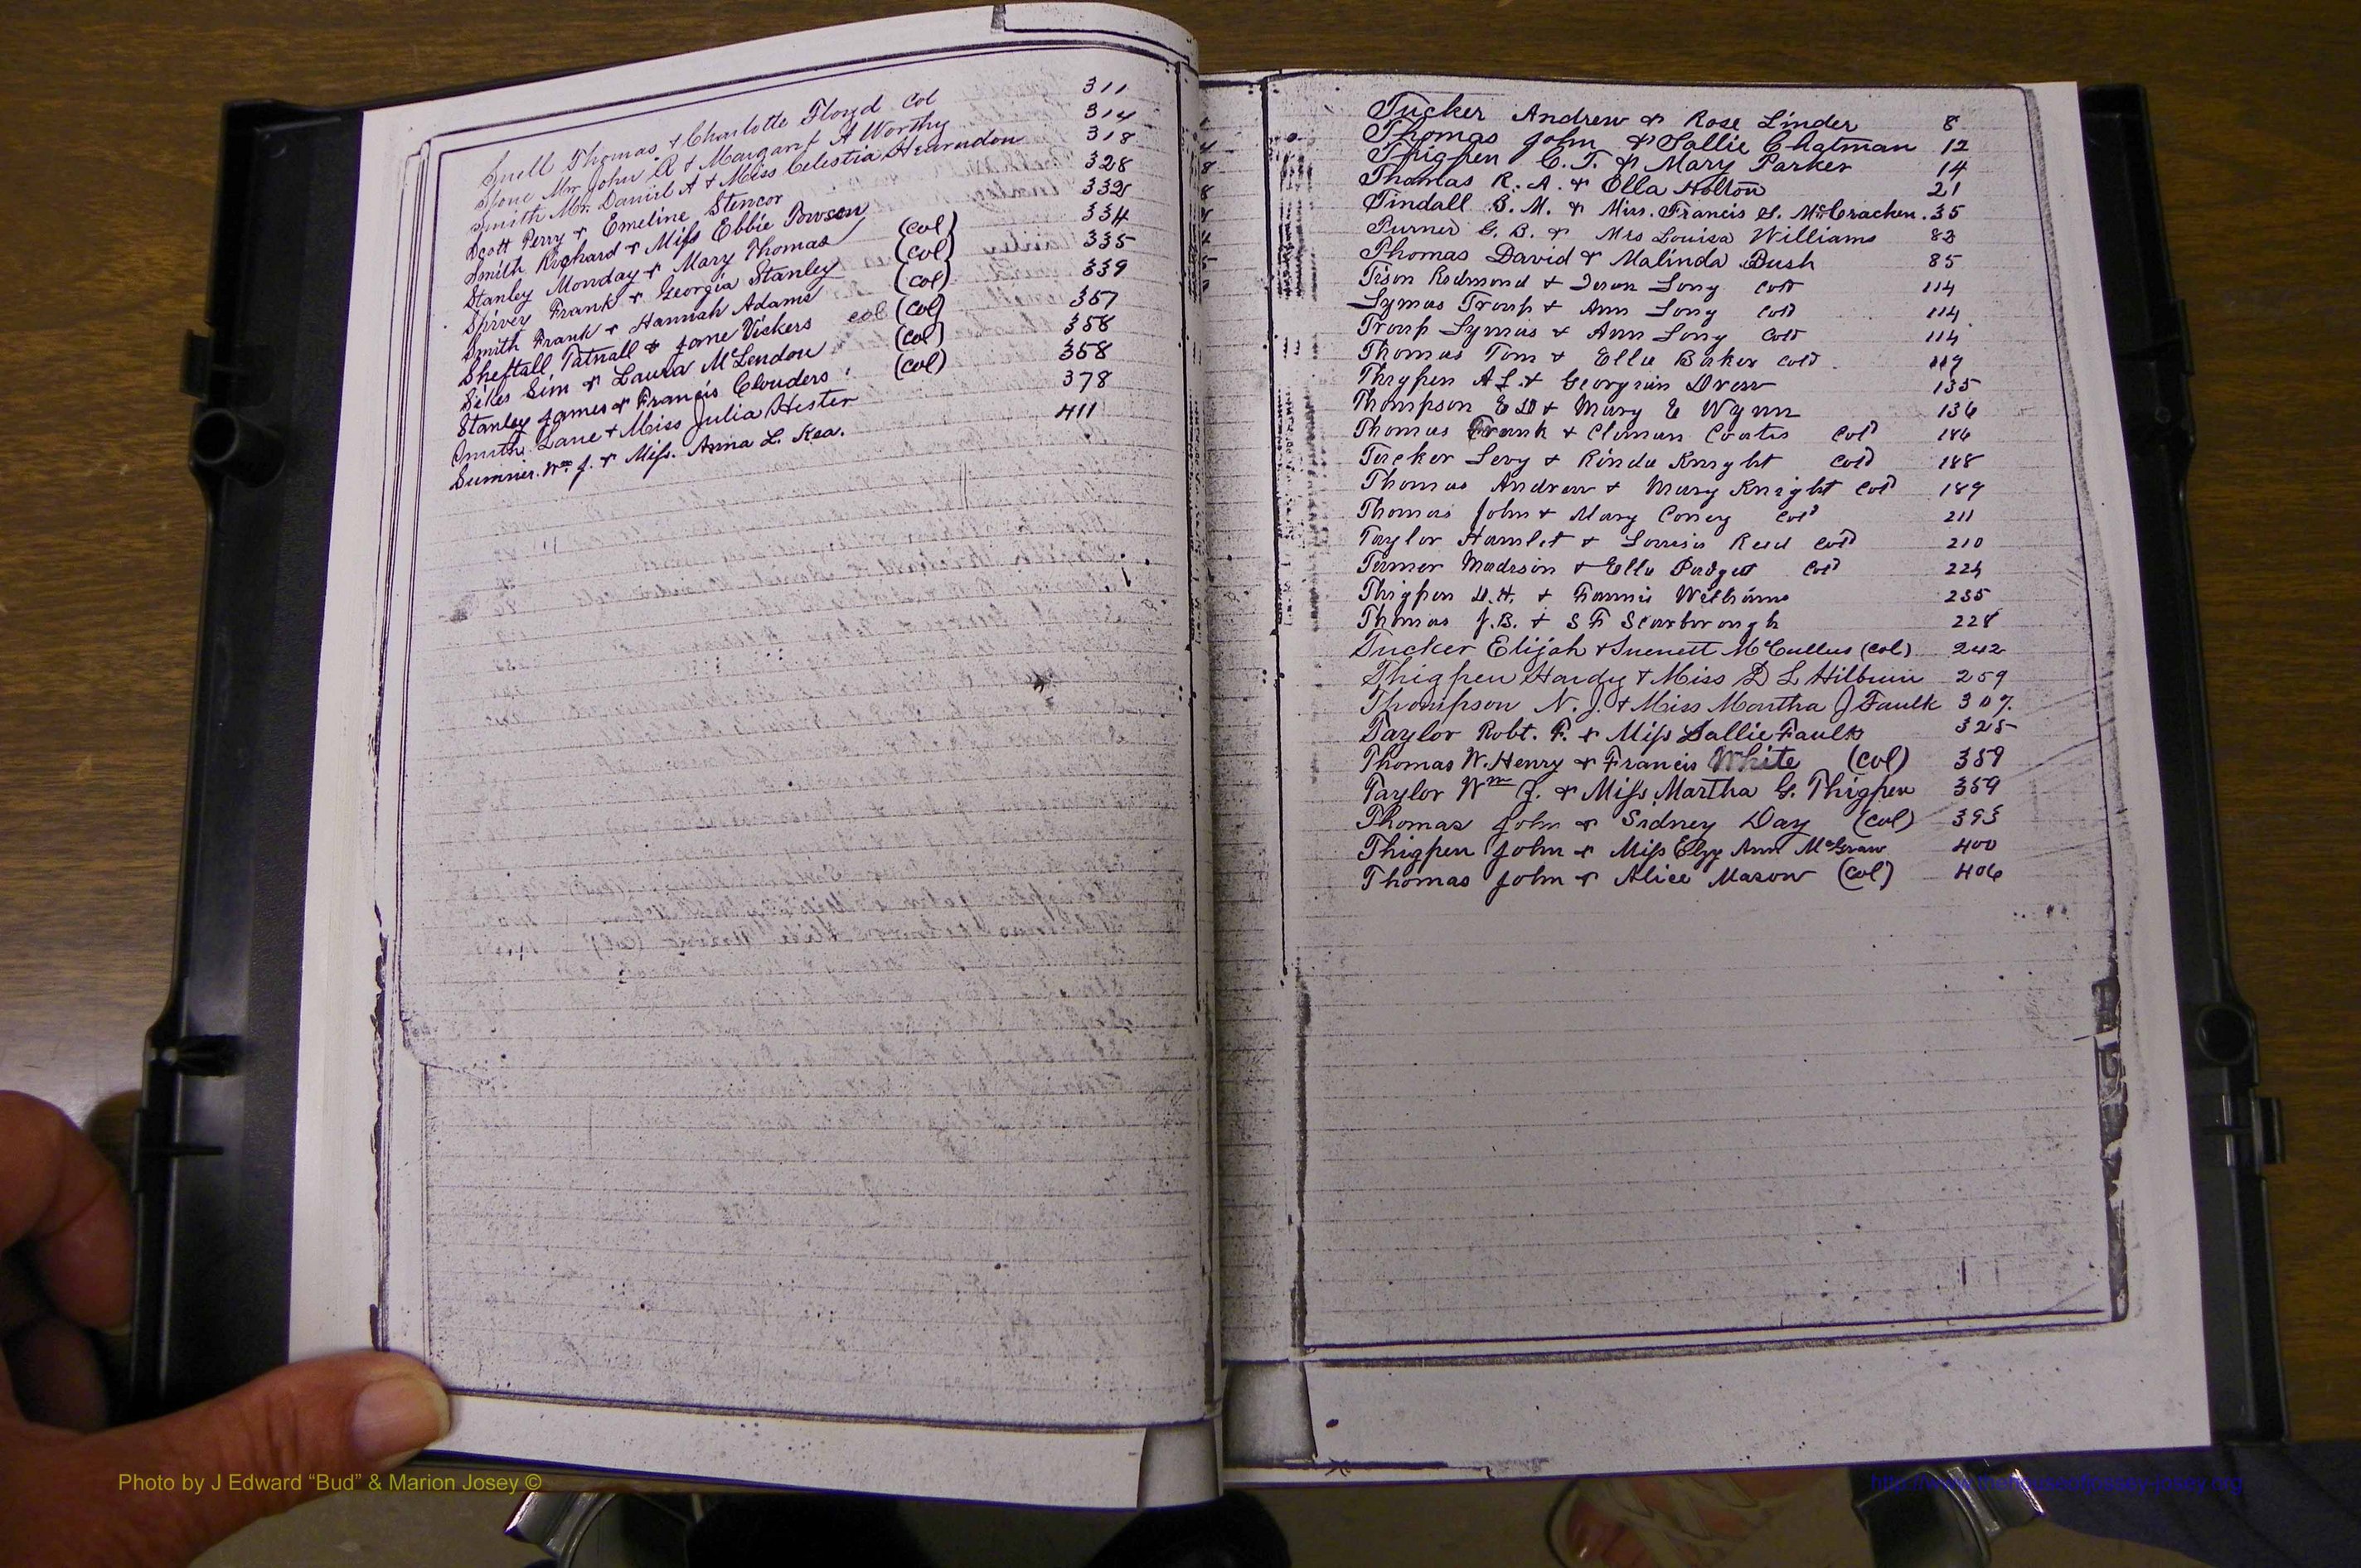 Snell Thomas + Charlotte Floyd Col 311
Stone Mr John R + Margaret A Worthy 314
Smith Mr. Daniel A + Miss Celestia Hearndon 318
Scott Perry + Emeline Stencor 328
Smith Richard + Miss Ebbie Powson 332
Stanley Monday + Mary Thomas (Col) 334
Spivey Frank + Georgia Stanley (Col) 335
Smith Frank + Hannah Adams (Col) 339
Sheftall Tatnall & Jane Vickers col (Col) 357
Sikes Sim & Laura McLendon (Col) 358
Stanley James & Francis Clouders (Col) 358
Smith Lane + Miss Julia Hester 378
Sumner. Wm J. & Miss. Anna L. Kea. 411
Tucker Andrew & Rose Linder 8
Thomas John & Sallie Chatman 12
Thigpen C. T. & Mary Parker 14
Thomas R. A. & Ella Holton 21
Tindall B. M. & Miss. Francis S. McCracken. 35
Turner G. B. & Mrs Louisa Williams 83
Thomas David & Malinda Bush 85
Tison Redmond + Long Cold 114
Lymas Troup + Ann Long Cold 114
Troup Lymus + Ann Long Cold 114
Thomas Tom + Ella Baker Cold 119
Thigpen A L + Georgian Drew 135
Thompson E D + Mary E Wynn 136
Thomas Frank + Climan Coates Cold 186
Tucker Levy + Rinda Knight Cold 188
Thomas Andrew + Mary Knight Cold 189
Thomas John + Mary Coney Cold 211
Taylor Hamlet + Louisa Reed Cold 210
Turner Madison + Ella Padget Cold 224
Thigpen D. H. + Fannie Williams 235
Thomas J. B. + S F Scarborough 228
Tucker Elijah + McCullus (Col) 242
Thigpen Hardy + Miss D L Hilburn 259
Thompson N. J. + Miss Martha J Faulk 307.
Taylor Robt. F. & Miss Sallie Faulk 325
Thomas W. Henry & Francis White (Col) 359
Taylor Wm J. & Miss Martha G. Thigpen 359
Thomas John & Sidney Day (Col) 393
Thigpen John & Miss Ann McGraw 400
Thomas John & Alice Mason (Col) 406
Photo by J Edward “Bud” & Marion Josey ©
http://www.thehouseofjossey-josey.org